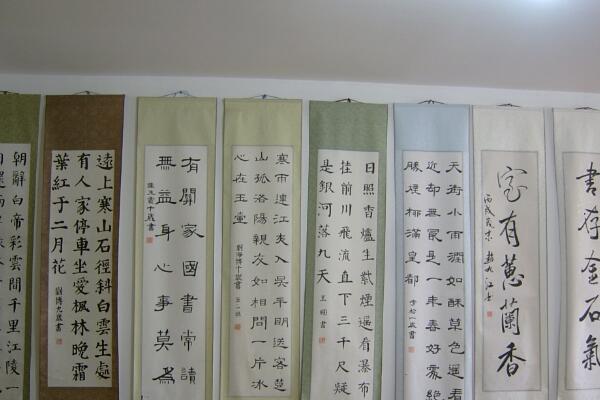 書存金石氣
室有蕙蘭香
天街小雨潤如酥草色遙看
近却無最是一年春好處絕
勝煙柳滿皇都
日照香爐生紫煙遥看瀑布
挂前川飛流直下三千尺疑
是銀河落九天
寒雨連江夜入吳平明送客楚
山孤洛陽親友如相問一片冰
心在玉壺
有關家國書常讀
無益身心事莫為
遠上寒山石徑斜白雲生處
有人家停車坐愛楓林晚霜
葉紅于二月花
劉博九歲書
朝辭白帝彩雲間千里江陵一